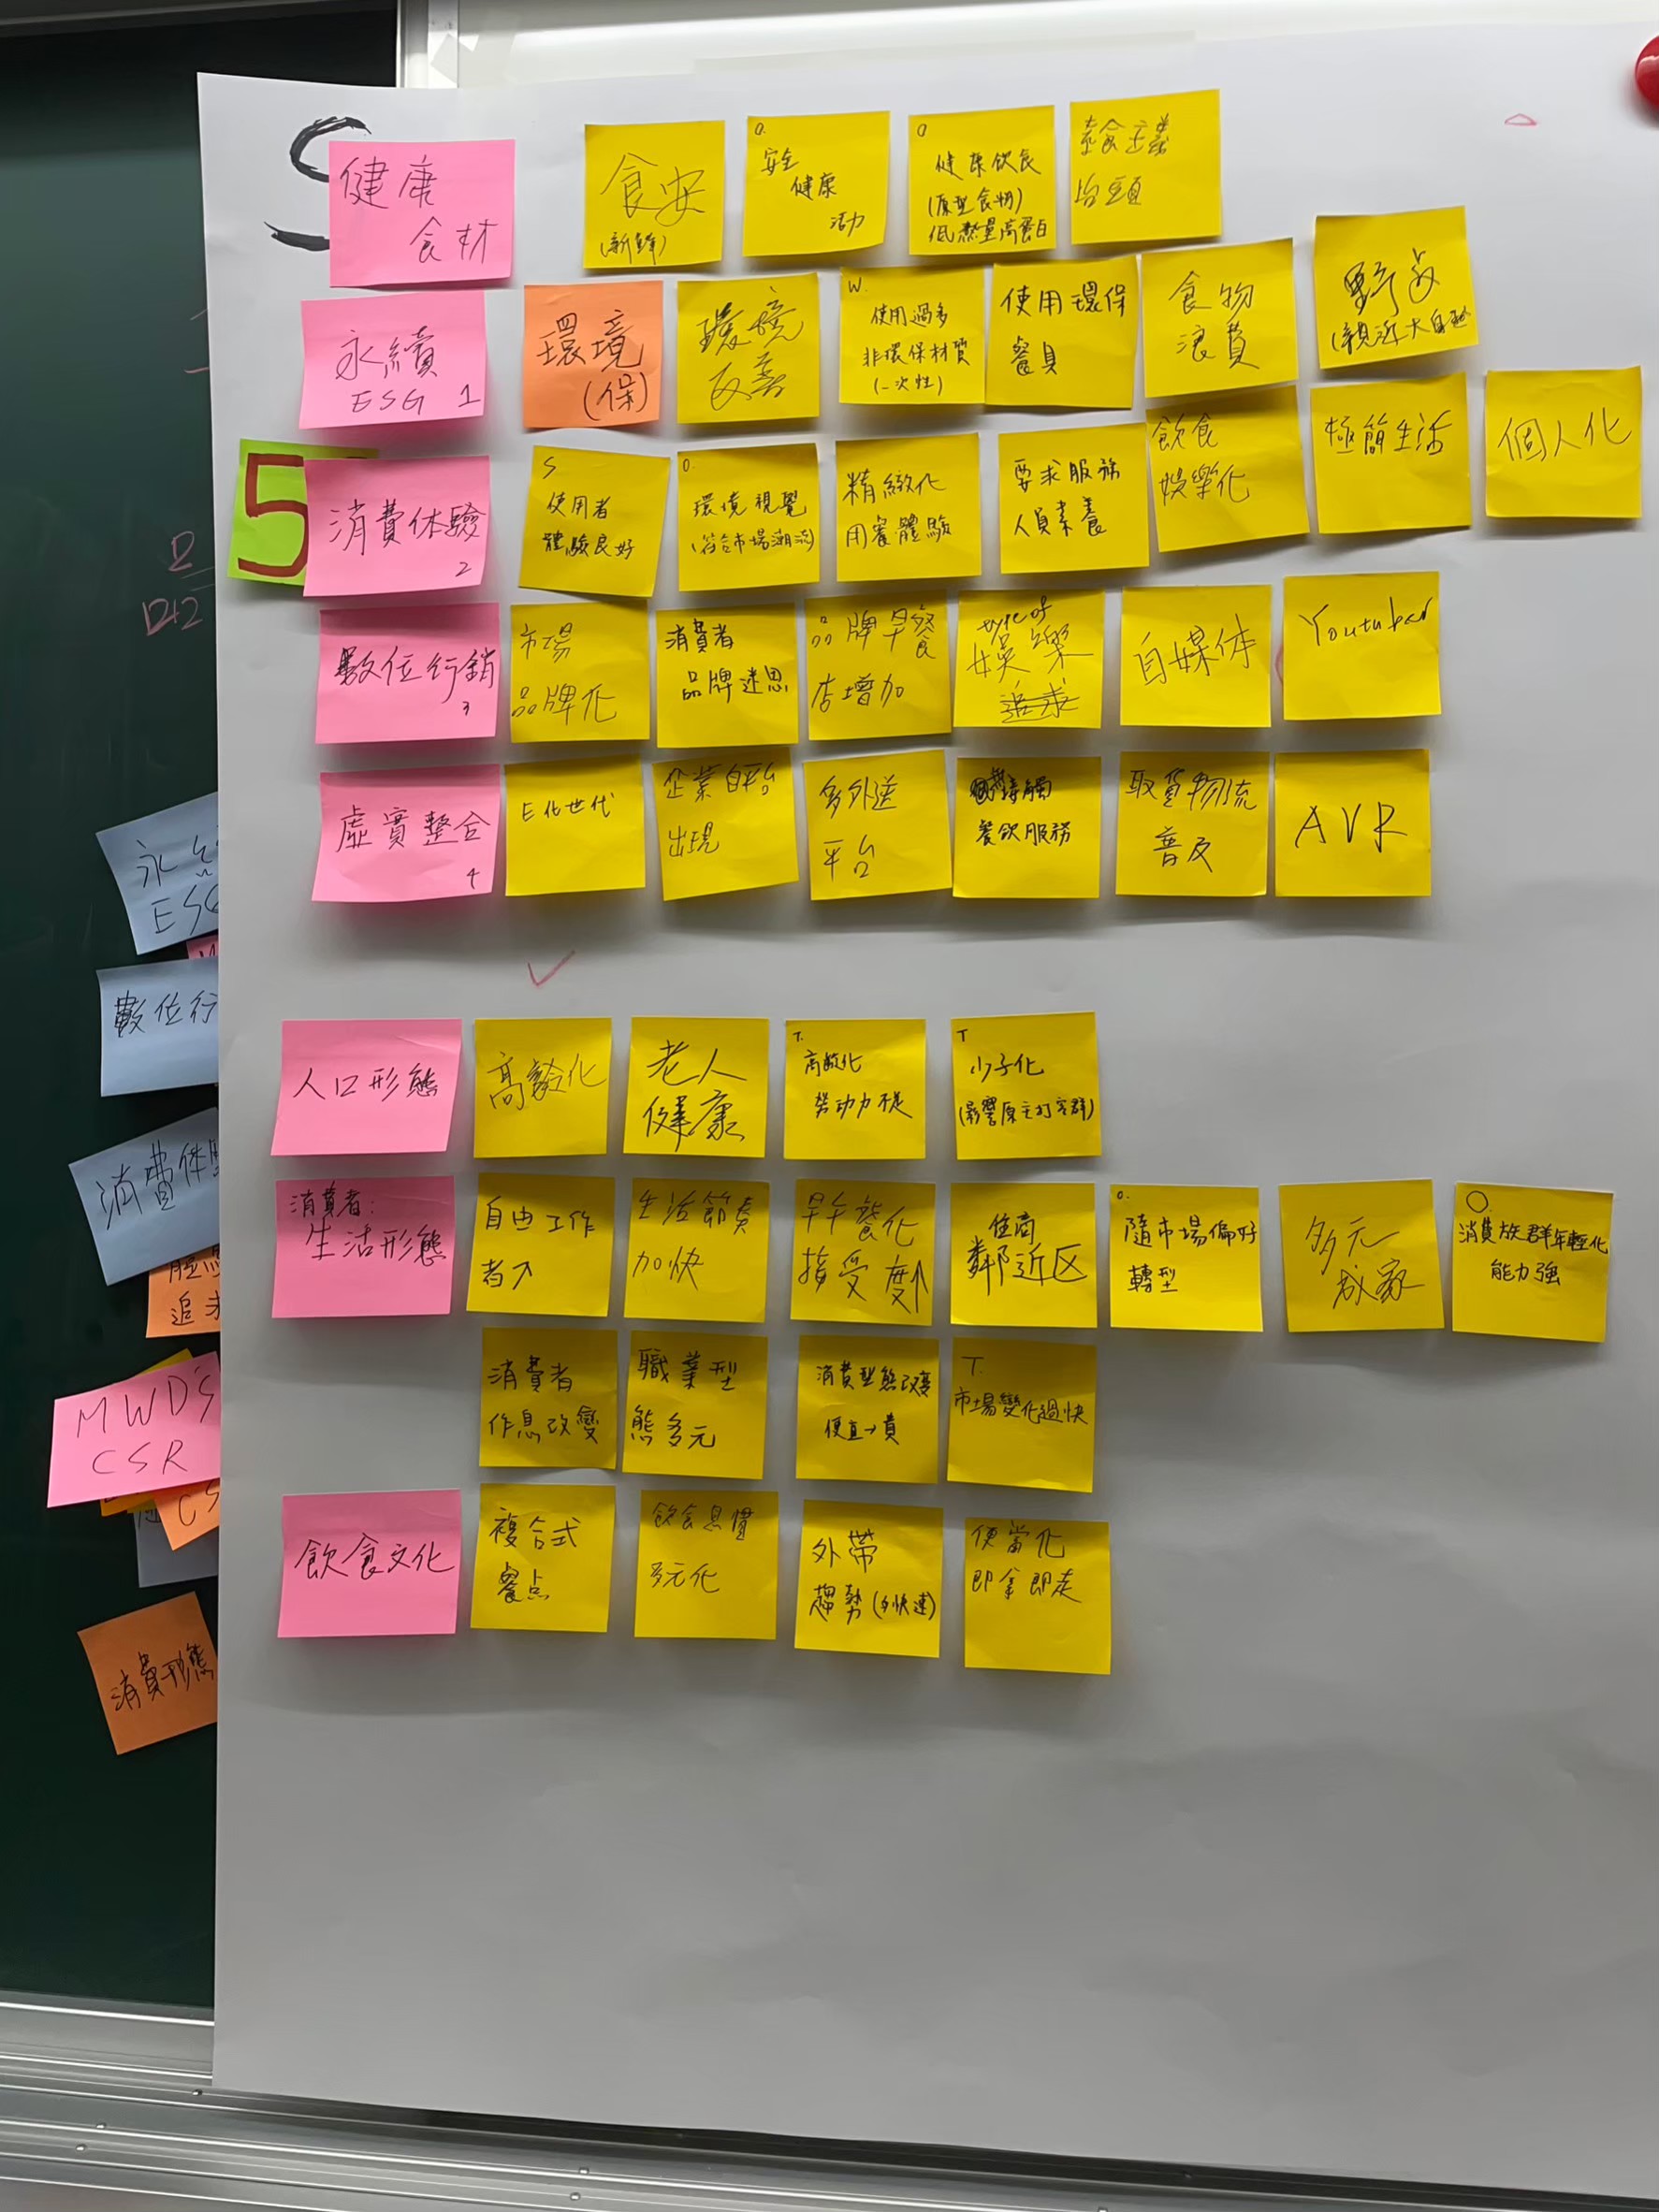 S
健康
食材
食安
(新鮮)
O.
安全
健康
活力
O
健康飲食
(原型食物)
低熱量高蛋白
素食主義
抬頭
永續
ESG 1
環境
(保)
環境
友善
W.
使用過多
非環保材質
(一次性)
使用環保
餐具
食物
浪費
野炊
(親近大自然
5
消費体驗
2
S
使用者
體驗良好
O.
環境視覺
(符合市場潮流)
精緻化
用餐體驗
要求服務
人員素養
飲食
娛樂化
極簡生活
個人化
數位行銷
3
市場
品牌化
消費者
品牌迷思
品牌早餐
店增加
style of
娛樂
追求
自媒体
Youtuber
虛實整合
4
E化世代
企業自平台
出現
多外送
平台
接觸
餐飲服務
取貨物流
普及
AVR
人口形態
高齡化
老人
健康
T.
高齡化
勞動力不足
T
少子化
(影響原主打客群)
消費者:
生活形態
自由工作
者↗
生活節奏
加快
早午餐化
接受度↑
住商
鄰近区
O.
隨市場偏好
轉型
多元
成家
O
消費族群年輕化
能力強
消費者
作息改變
職業型
態多元
消費型態改變
便宜→貴
T.
市場變化過快
飲食文化
複合式
餐点
飲食習慣
多元化
外帶
趨勢(多快速)
便當化
即拿即走
永
ESG
數位行
消費体
追求
MWD's
CSR
CS
消費形態